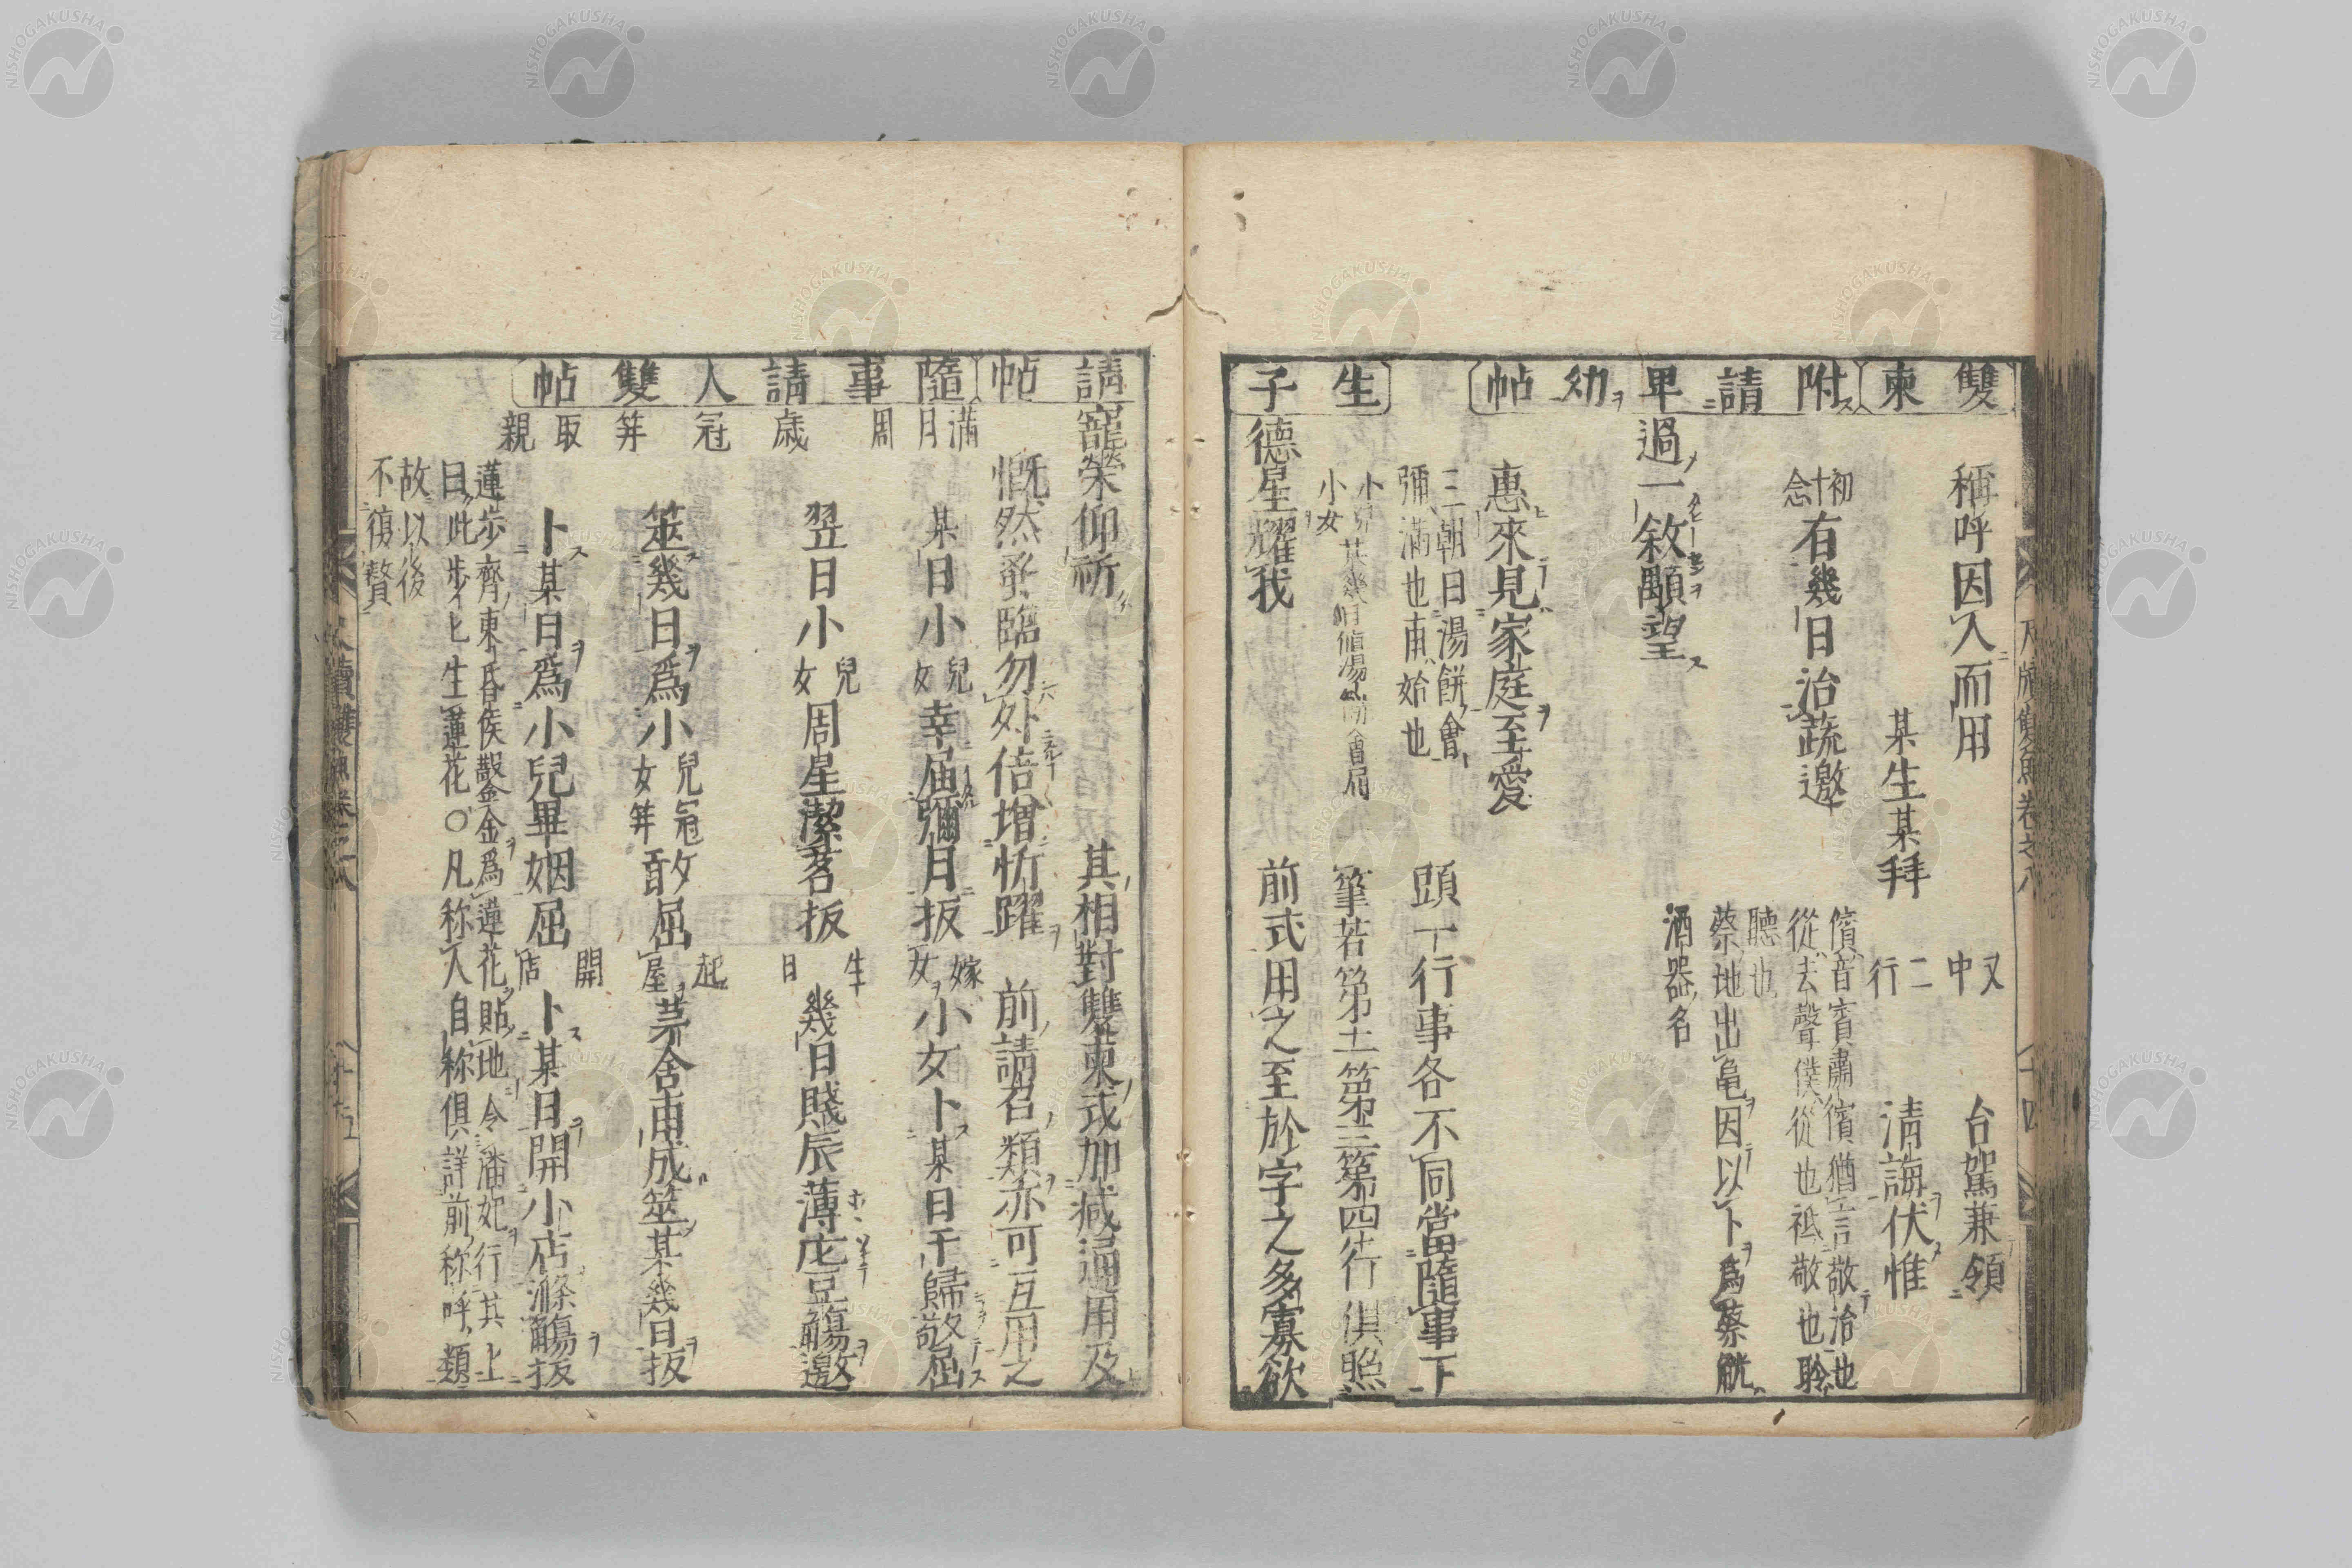 雙柬
附請卑幼帖
生子
稱呼因人而用
又中
台駕兼領
某生某拜
二行
清誨伏惟
初十念
有幾日治蔬邀
儐音賓肅儐猶言敬洽也
從去聲僕從也祗敬也聆
聽也
蔡地出龜因以卜爲蔡觥
酒器名
過一敘顒望
惠來見家庭至愛
三朝日湯餅會
彌滿也甫始也
頭一行事各不同當隨事下
小兒
小女
筆若第二第三第四行俱照
德星耀我
前式用之至於字之多寡欲
尺牘雙魚卷之八
十四
請帖
隨事請人雙帖
寵榮仰祈
其相對雙柬或加减通用及
慨然發臨勿外倍增忻躍
前請召類亦可互用之
滿月
某日小兒女幸届彌月扳
嫁女
小女卜某日于歸敬屈
周歲
翌日小兒女周星潔茗扳
生日
幾日賤辰薄庀豆觴邀
冠筓
筮幾日爲小兒冠女筓敢屈
起屋
茅舍甫成筮某幾日扳
取親
卜某日爲小兒畢姻屈
開店
卜某日開小店滌觴扳
蓮步齊東昏侯鑿金爲蓮花貼地令潘妃行其上
曰此步ヒ生蓮花○凡称人自称俱詳前称呼類
故以後
不復贅
尺牘雙魚卷之八
十五
NISHOGAKUSHA